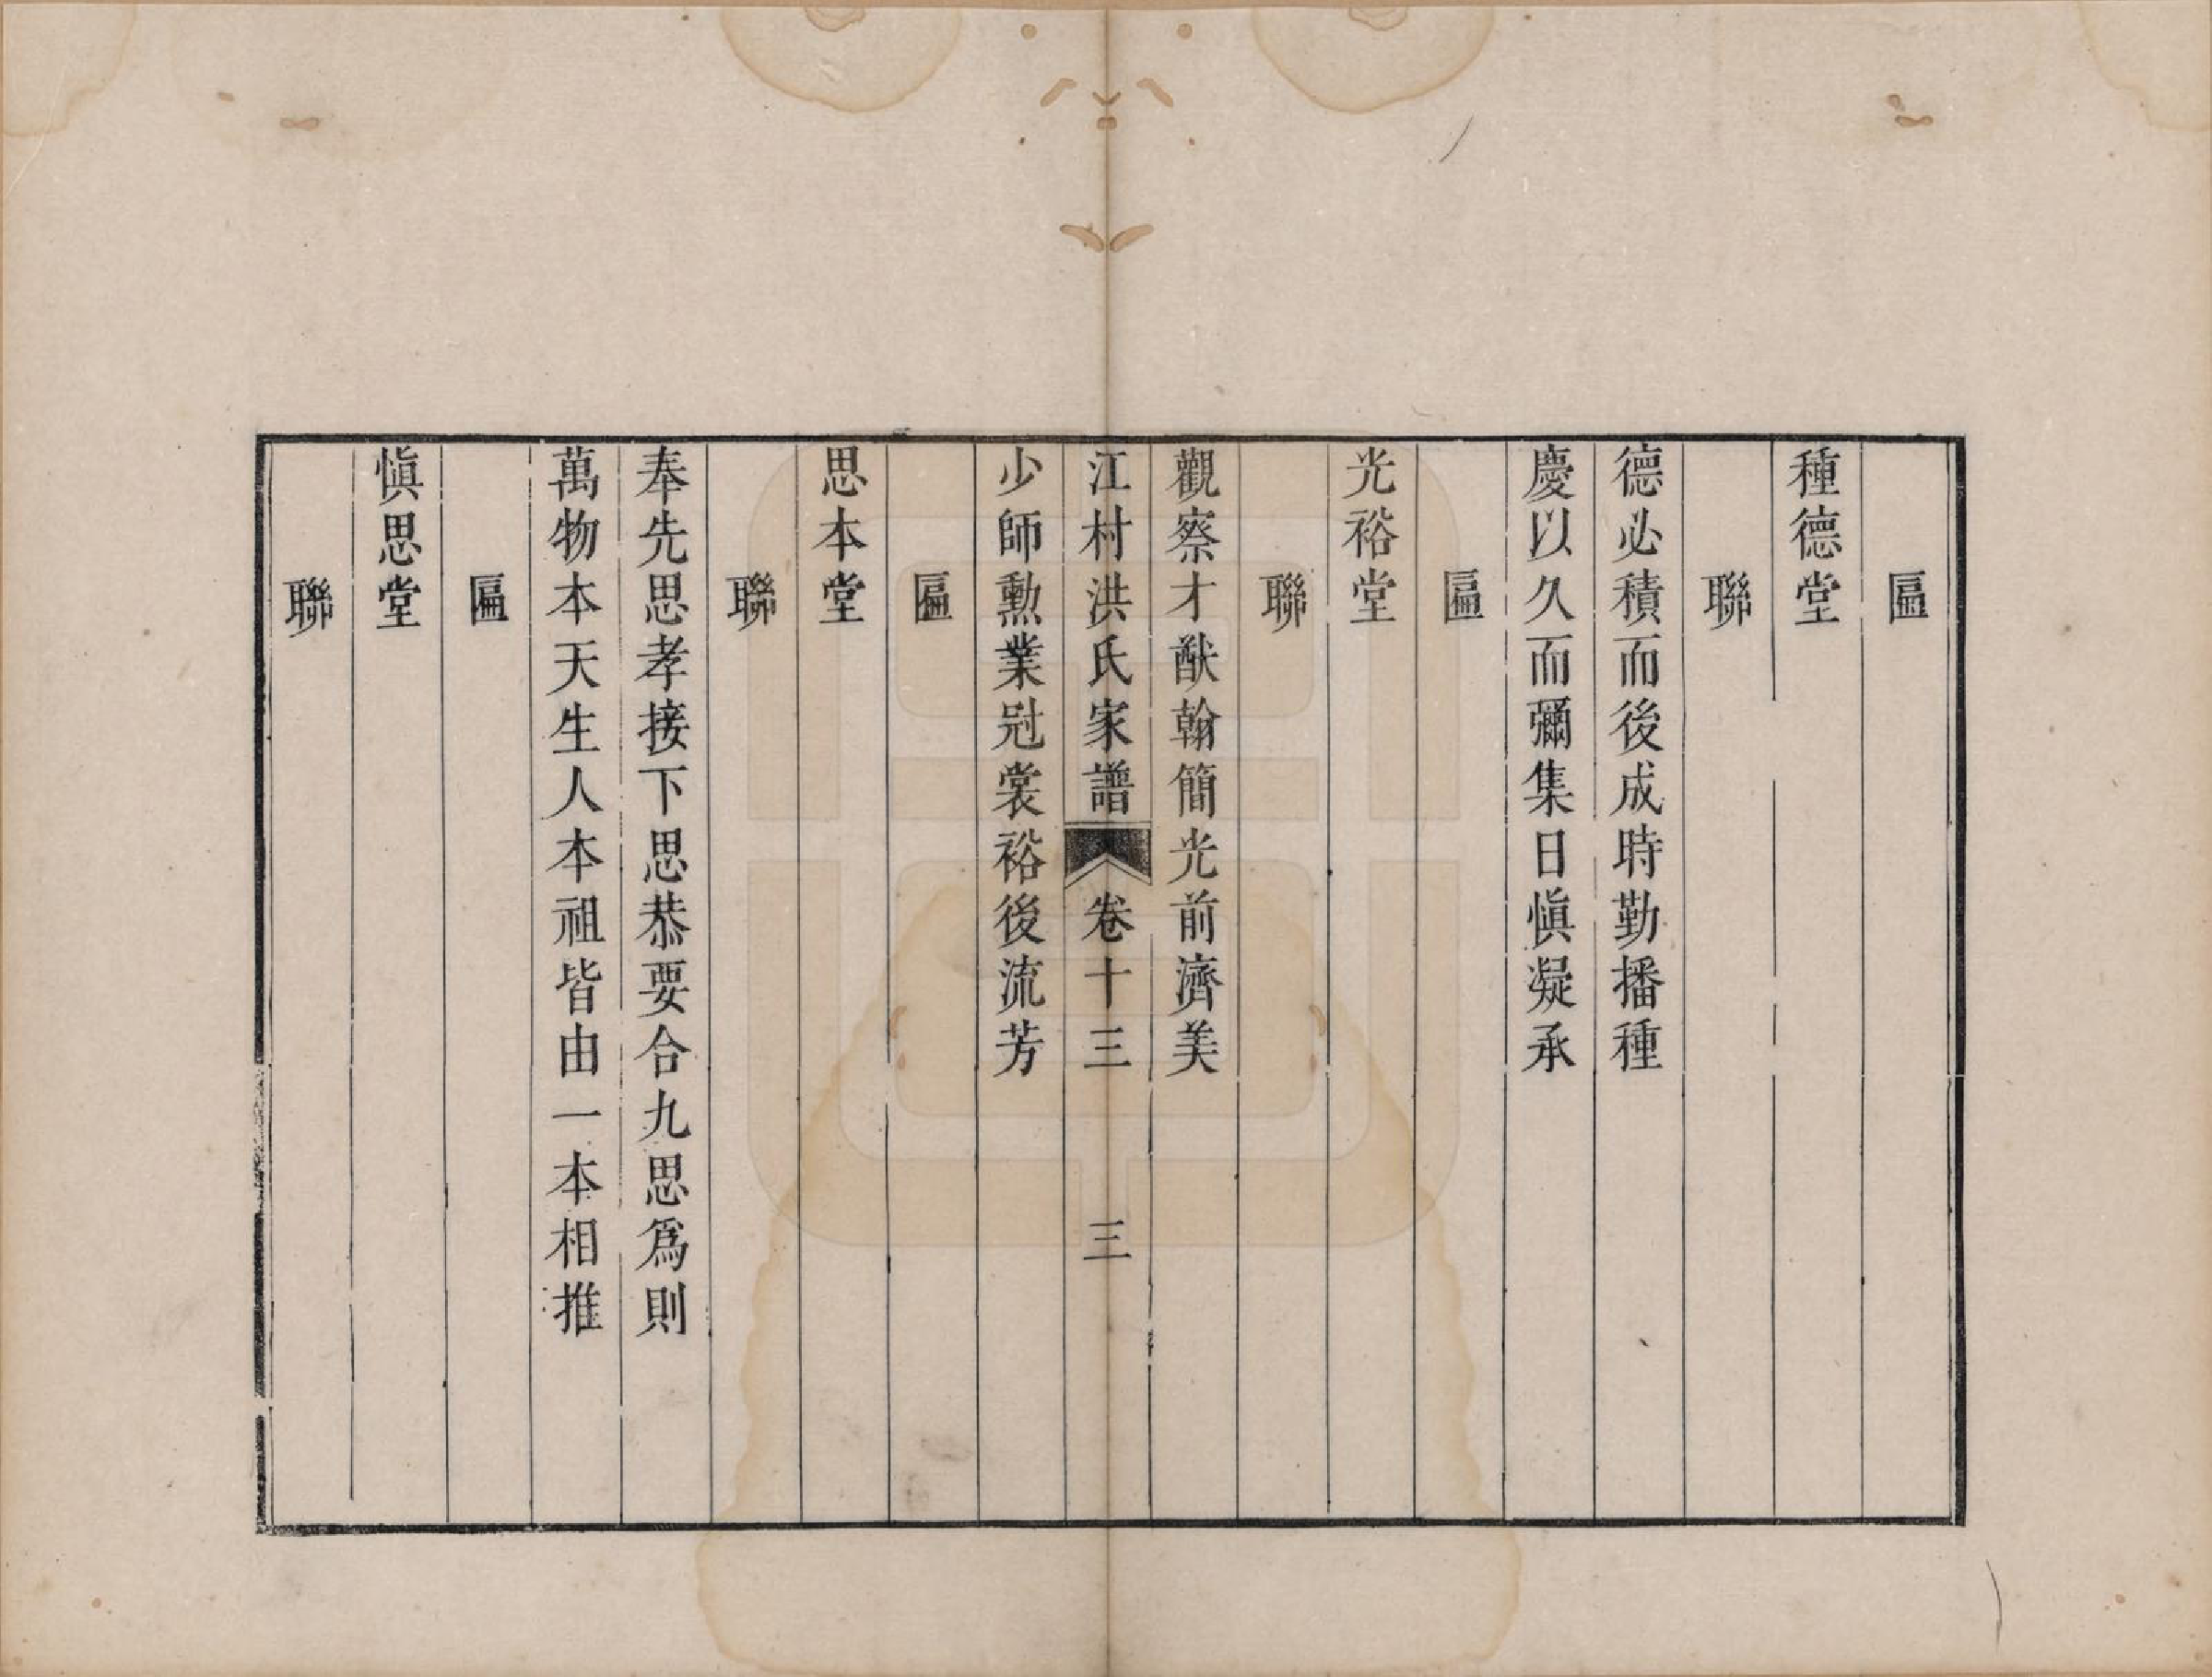 匾
種德堂
聯
德必積而後成時勤播種
慶以久而彌集日愼凝承
匾
光裕堂
聯
觀察才猷翰簡光前濟美
江村洪氏家譜 卷十三 三
少師勳業冠裳裕後流芳
匾
思本堂
聯
奉先思孝接下思恭要合九思爲則
萬物本天生人本祖皆由一本相推
匾
愼思堂
聯